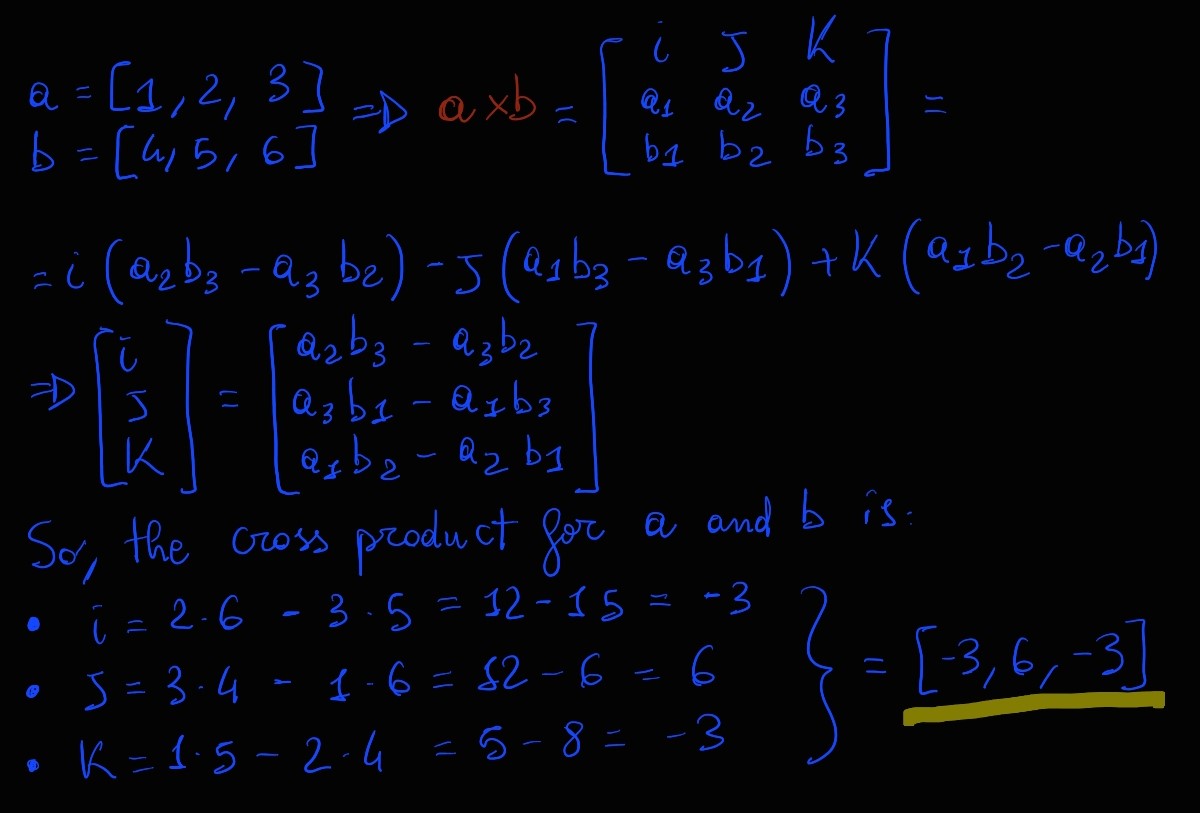 a = [1, 2, 3]
b = [4, 5, 6]
=> a×b = [i J K
a1 a2 a3
b1 b2 b3] =
= i (a2b3 - a3b2) - J (a1b3 - a3b1) + K (a1b2 - a2b1)
=> [i
J
K] = [a2b3 - a3b2
a3b1 - a1b3
a1b2 - a2b1]
So, the cross product for a and b is:
• i = 2·6 - 3·5 = 12-15 = -3
• J = 3·4 - 1·6 = 12 - 6 = 6
• K = 1·5 - 2·4 = 5 - 8 = -3
} = [-3, 6, -3]